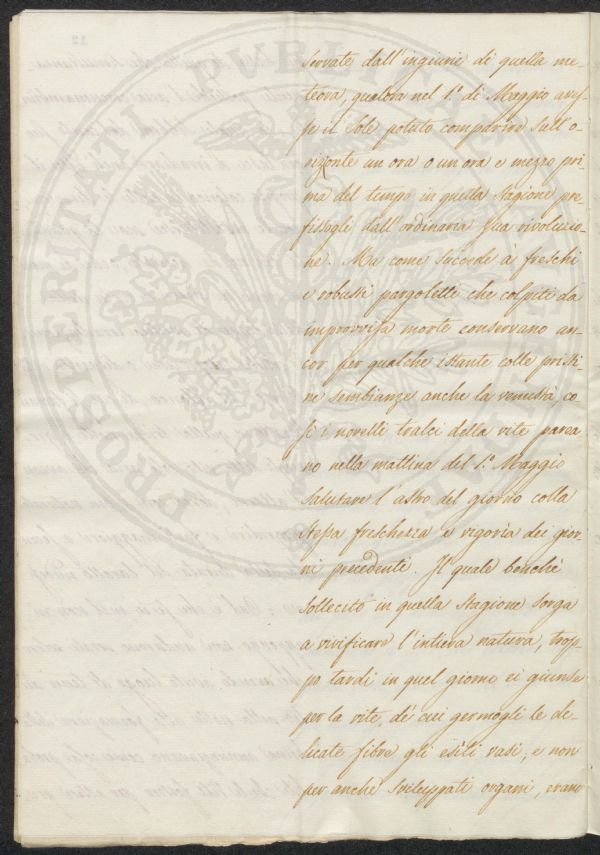 servate dall'ingiurie di quella me-
teora, qualora nel 1.º di Maggio aves-
se il Sole potuto comparire sull'o-
rizonte un ora o un ora e mezzo pri-
ma del tempo in quella stagione pre-
fissogli dall'ordinaria sua rivoluzio-
ne. Ma come succede à freschi
e robusti pargoletti che colpiti da
improvvisa morte conservano an-
cor per qualche istante colle pristi-
ne sembianze anche la venustà, co-
si i novelli tralci della vite parea-
no nella mattina del 1.º Maggio
salutare l'astro del giorno colla
stessa freschezza e vigorìa dei gior-
ni precedenti. Il quale benchè
sollecito in quella stagione sorga
a vivificare l'intiera natura, trop-
po tardi in quel giorno ei giunse
per la vite, de' cui germogli le de-
licate fibre gli esili vasi, e non
per anche sviluppati organi, erano
PROSPERITATI PUBLICAE